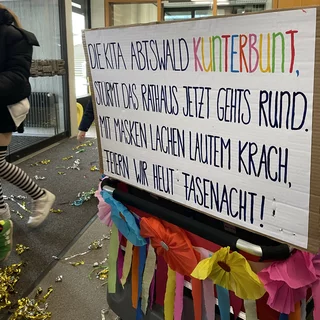 DIE KITA ABTSWALD KUNTERBUNT,
STÜRMT DAS RATHAUS JETZT GEHTS RUND.
MIT MASKEN LACHEN LAUTEM KRACH,
FEIERN WIR HEUT FASENACHT!